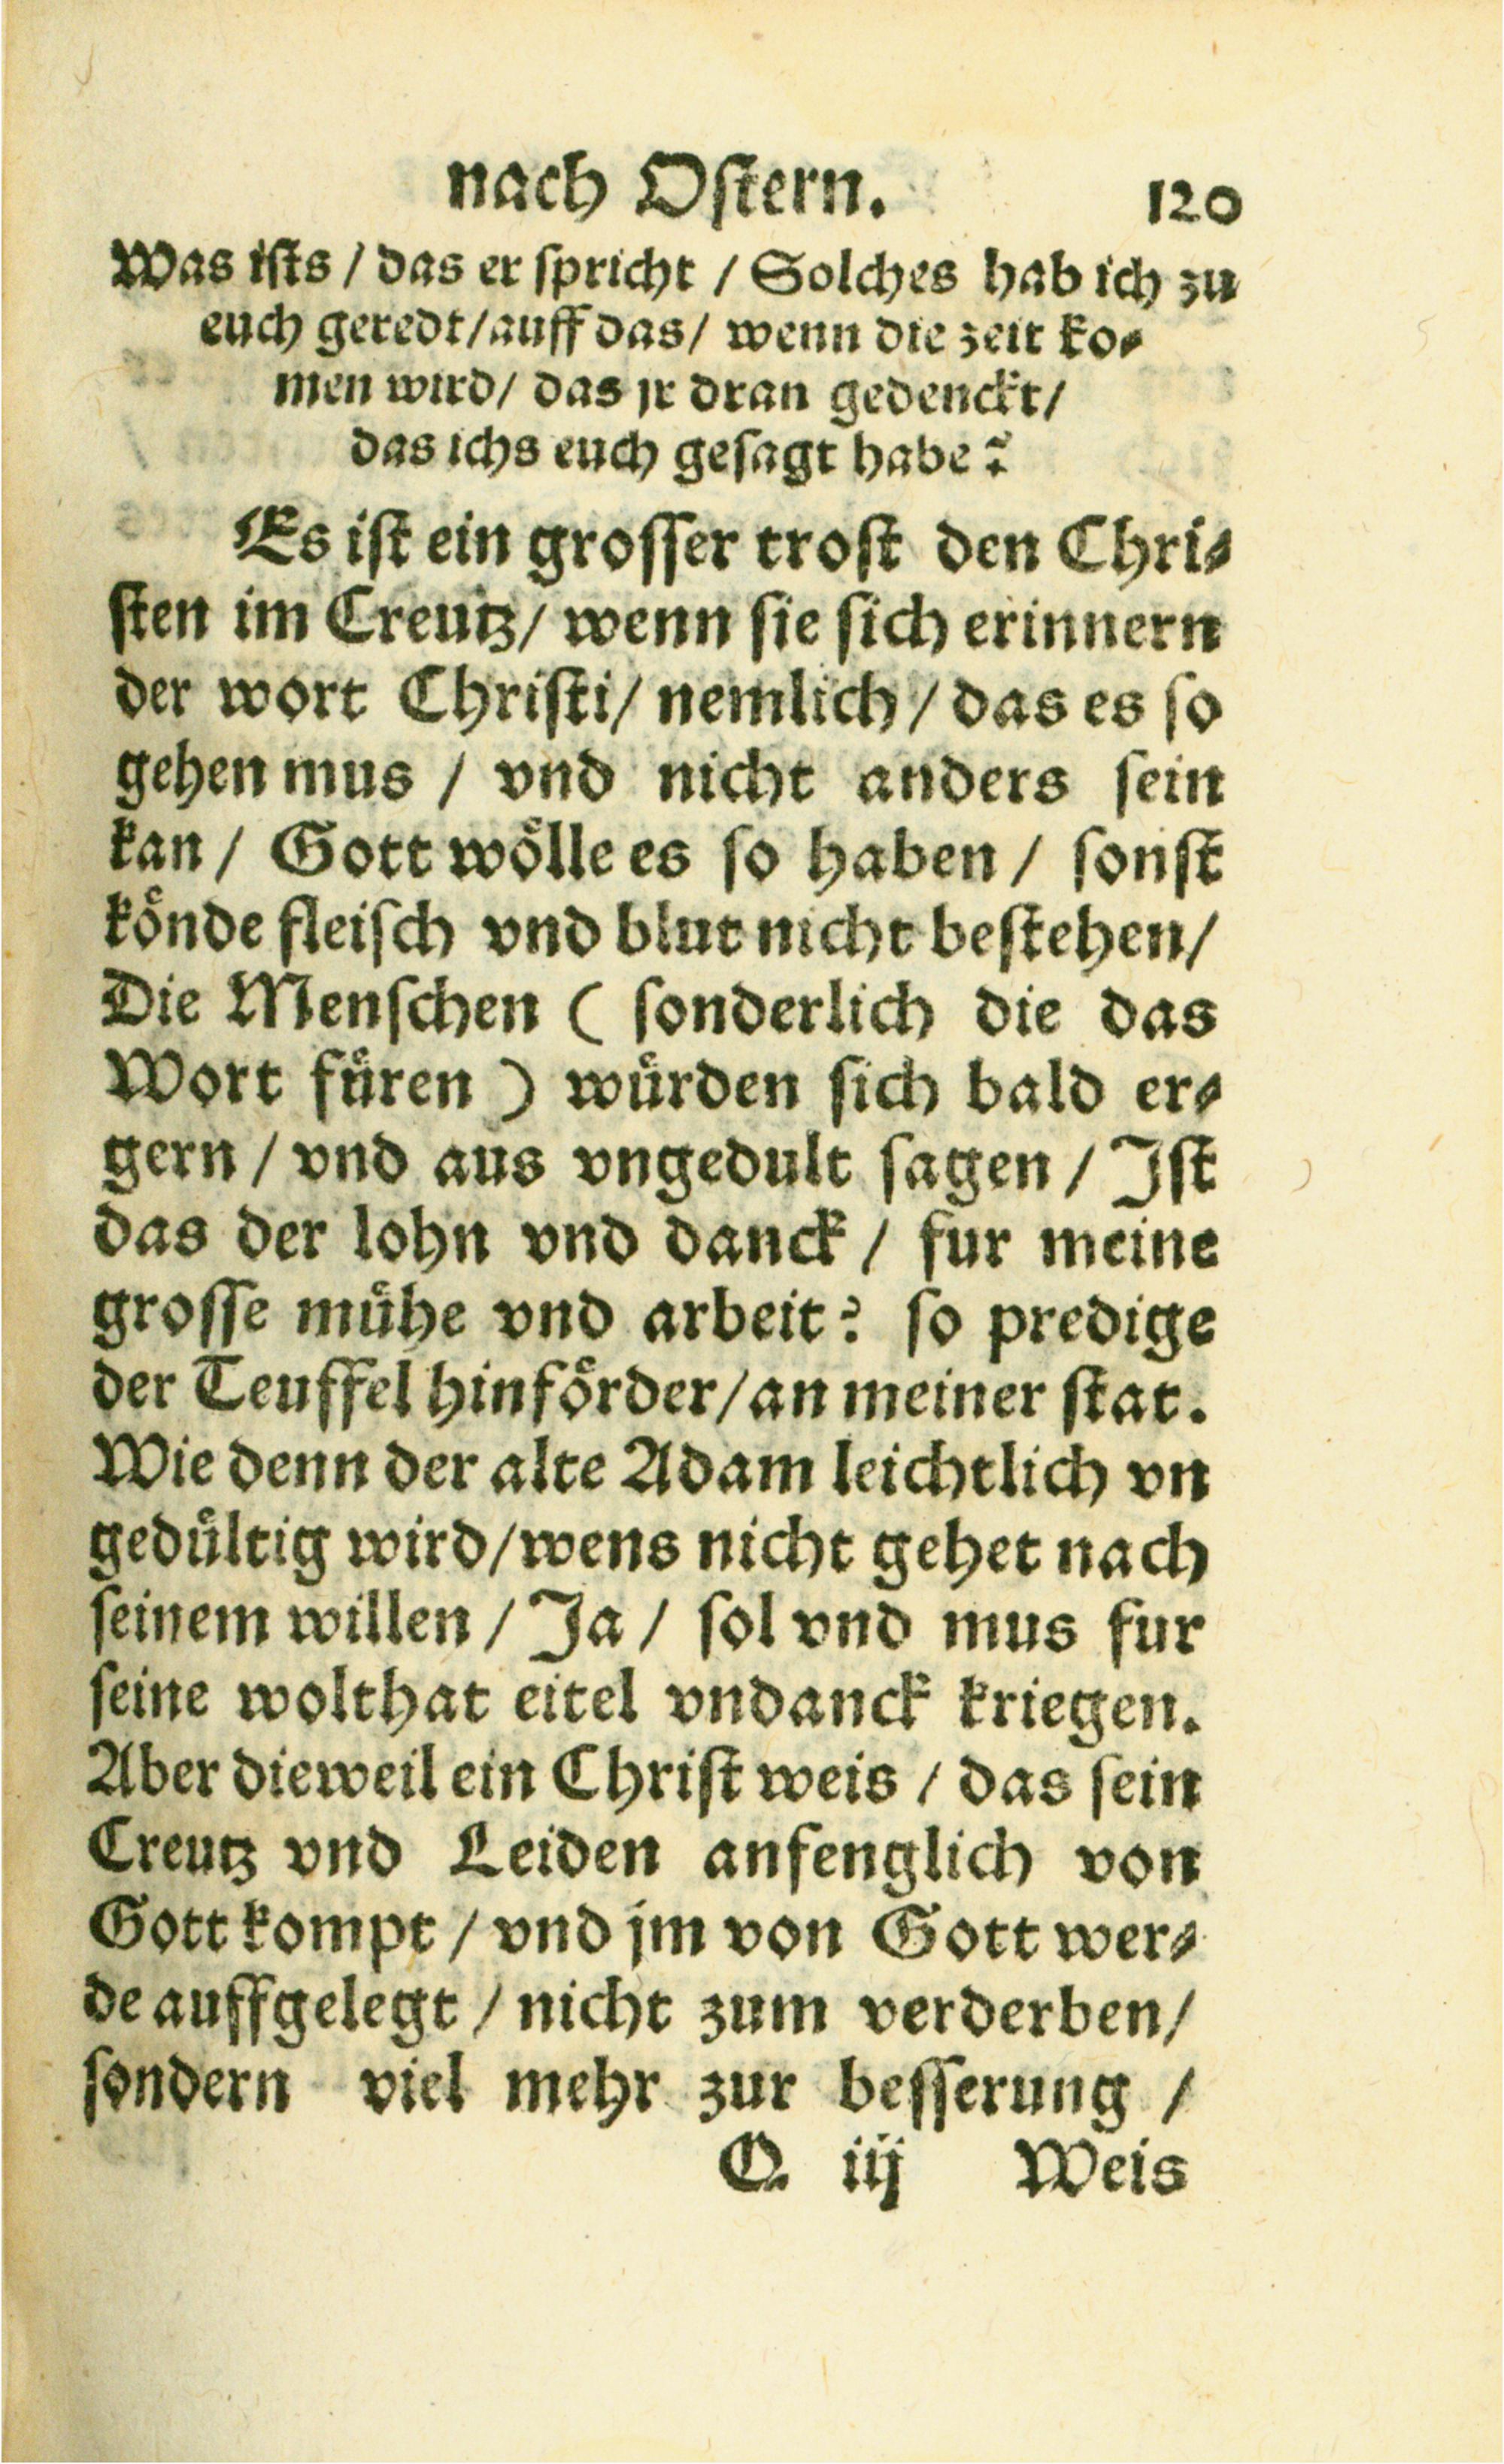 nach Oſtern. 120
Was iſts / das er ſpricht / Solches hab ich zu
euch geredt / auff das / wenn die zeit ko⸗
men wird / das jr dran gedenckt /
das ichs euch geſagt habe?
Es iſt ein groſſer troſt den Chri⸗
ſten im Creutz / wenn ſie ſich erinnern
der wort Chriſti / nemlich / das es ſo
gehen mus / vnd nicht anders ſein
kan / Gott woͤlle es ſo haben / ſonſt
koͤnde fleiſch vnd blut nicht beſtehen /
Die Menſchen ( ſonderlich die das
Wort fuͤren ) wuͤrden ſich bald er⸗
gern / vnd aus vngedult ſagen / Iſt
das der lohn vnd danck / fur meine
groſſe muͤhe vnd arbeit? ſo predige
der Teuffel hinfoͤrder / an meiner ſtat.
Wie denn der alte Adam leichtlich vn
geduͤltig wird / wens nicht gehet nach
ſeinem willen / Ja / ſol vnd mus fur
ſeine wolthat eitel vndanck kriegen.
Aber dieweil ein Chriſt weis / das ſein
Creutz vnd Leiden anfenglich von
Gott kompt / vnd jm von Gott wer⸗
de auffgelegt / nicht zum verderben /
ſondern viel mehr zur beſſerung /
Q iij Weis